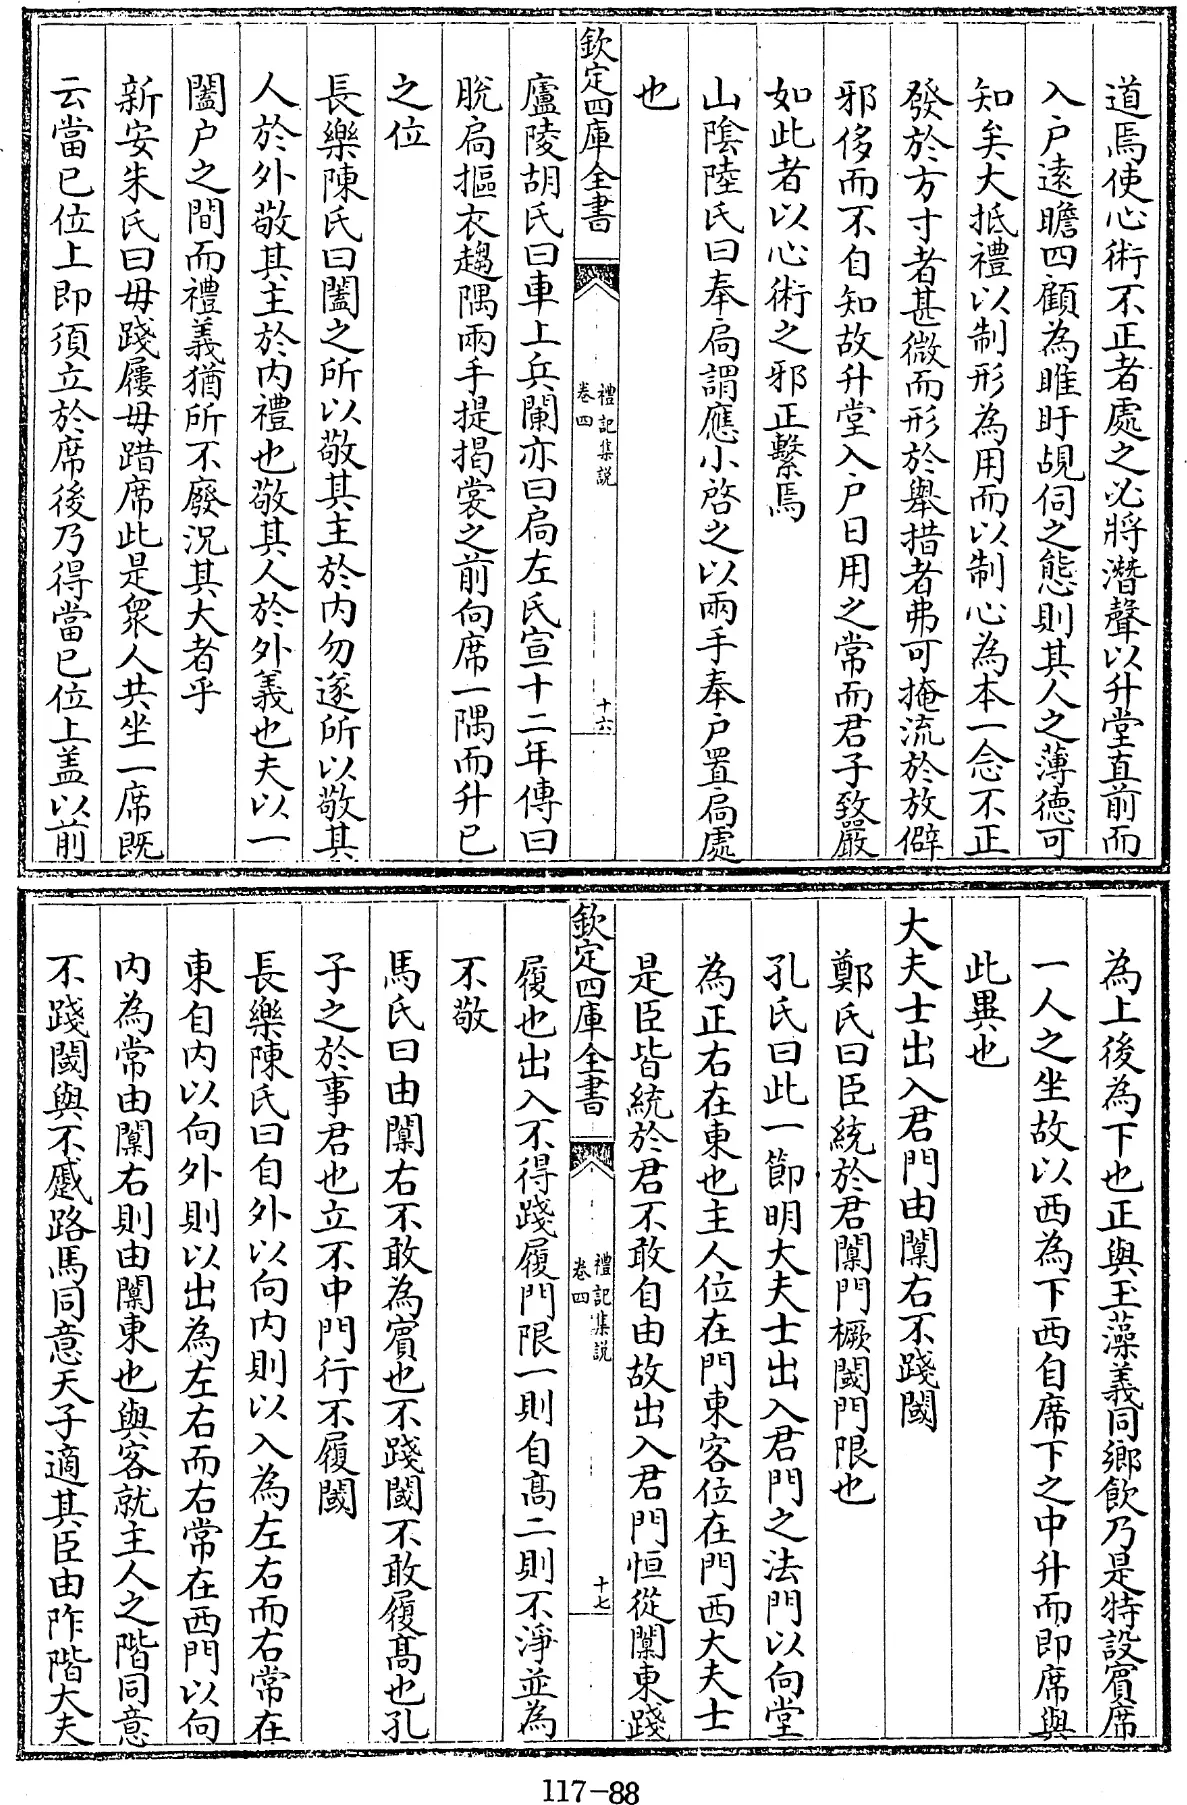 道焉使心術不正者處之必將潛聲以升堂直前而
入户遠瞻四顧為睢盱覘伺之態則其人之薄德可
知矣大抵禮以制形為用而以制心為本一念不正
發於方寸者甚微而形於舉措者弗可掩流於放僻
邪侈而不自知故升堂入户日用之常而君子致嚴
如此者以心術之邪正繫焉
山陰陸氏曰奉扃謂應小啓之以兩手奉户置扃處
也
欽定四庫全書
禮記集説
卷四
十六
廬陵胡氏曰車上兵闌亦曰扃左氏宣十二年傳曰
脱扃摳衣趨隅兩手提揭裳之前向席一隅而升已
之位
長樂陳氏曰闔之所以敬其主於内勿遂所以敬其
人於外敬其主於内禮也敬其人於外義也夫以一
闔户之間而禮義猶所不廢況其大者乎
新安朱氏曰毋踐屨毋踖席此是衆人共坐一席既
云當已位上即須立於席後乃得當已位上蓋以前
為上後為下也正與玉藻義同鄉飲乃是特設賓席
一人之坐故以西為下西自席下之中升而即席與
此異也
大夫士出入君門由闑右不踐閾
鄭氏曰臣統於君闑門橛閾門限也
孔氏曰此一節明大夫士出入君門之法門以向堂
為正右在東也主人位在門東客位在門西大夫士
是臣皆統於君不敢自由故出入君門恒從闑東踐
欽定四庫全書
禮記集説
卷四
十七
履也出入不得踐履門限一則自高二則不淨並為
不敬
馬氏曰由闑右不敢為賓也不踐閾不敢履高也孔
子之於事君也立不中門行不履閾
長樂陳氏曰自外以向内則以入為左右而右常在
東自内以向外則以出為左右而右常在西門以向
内為常由闑右則由闑東也與客就主人之階同意
不踐閾與不蹙路馬同意天子適其臣由阼階大夫
117-88